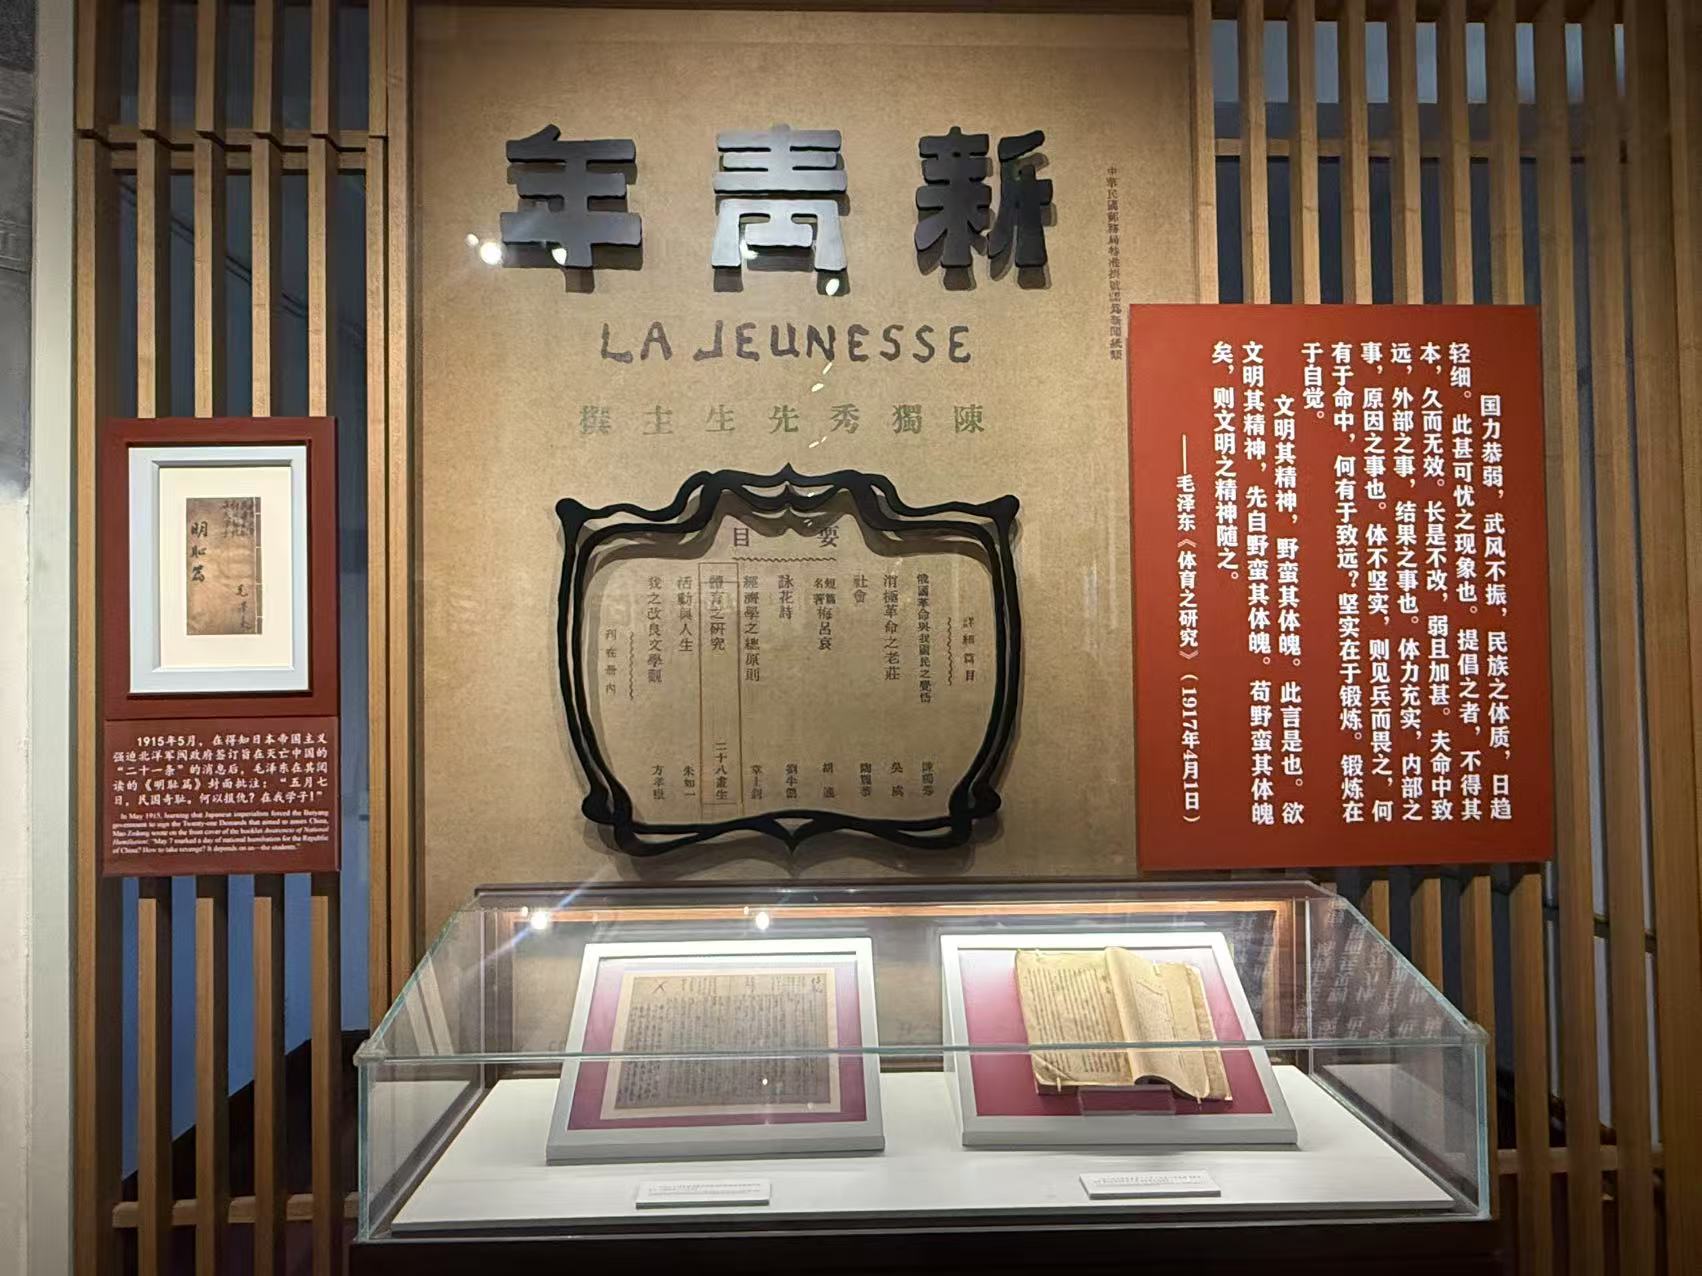 新青年
LA JEUNESSE
陳獨秀先生主撰
中華民國郵務局特准掛號認爲新聞紙類
要目
詳細篇目
俄國革命與我國民之覺悟 陳獨秀
消極革命之老莊 吳虞
社會 陶履恭
短篇名著 梅呂哀 胡適
詠花詩 劉半儂
經濟學之總原則 章士釗
體育之研究 二十八畫生
活動與人生 朱如一
我之改良文學觀 方孝嶽
列在册内
国力恭弱，武风不振，民族之体质，日趋
轻细。此甚可忧之现象也。提倡之者，不得其
本，久而无效。长是不改，弱且加甚。夫命中致
远，外部之事，结果之事也。体力充实，内部之
事，原因之事也。体不坚实，则见兵而畏之，何
有于命中，何有于致远？坚实在于锻炼。锻炼在
于自觉。
文明其精神，野蛮其体魄。此言是也。欲
文明其精神，先自野蛮其体魄。苟野蛮其体魄
矣，则文明之精神随之。
——毛泽东《体育之研究》（1917年4月1日）
明恥篇
1915年5月，在得知日本帝国主义
强迫北洋军阀政府签订旨在灭亡中国的
“二十一条”的消息后，毛泽东在其阅
读的《明耻篇》封面批注：“五月七
日，民国奇耻。何以报仇？在我学子！”
In May 1915, learning that Japanese imperialism forced the Beiyang
government to sign the Twenty-one Demands that aimed to annex China,
Mao Zedong wrote on the front cover of the booklet Awareness of National
Humiliation: "May 7 marked a day of national humiliation for the Republic
of China! How to take revenge? It depends on us—the students."